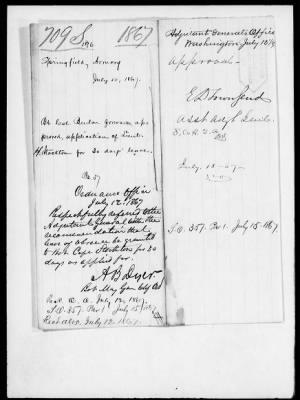 709 S. 1867
Springfield, Armory
July 10, 1867.
approves, application of Lieut.
for 30 days' leave.
No. 57
Ordnance Office
July 12, 1867
Respectfully referred to the
Adjutant General with the
recommendation that
leave of absence be granted
to Capt. Stockton for 30
days as applied for.
A B Dyer
Bt. Maj Gen
Rec'd A.G.O. July 12, 1867.
S.O. 357. Par 1 July 15/1867
July 12 1867.
Adjutant General's Office
Washington, July 15
Approved.
E D Townsend
Asst Adjt Genl.
July 15-67
S.O. 357. Par 1. July 15-1867.